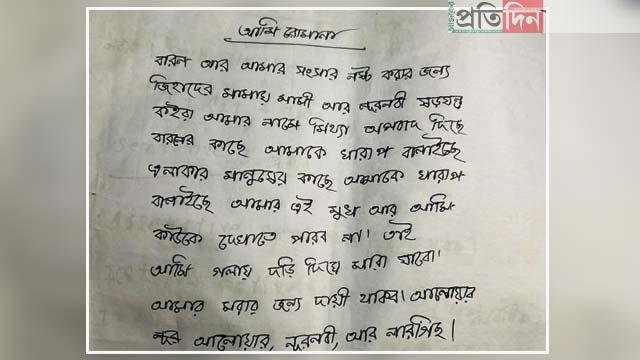 আজকের
প্রতিদিন
আমি রোমানা
বারন আর আমার সংসার নষ্ট করার জন্যে
জিহাদের মামায় মামী আর নূরনবী ষড়যন্ত্র
কইরা আমার নামে মিথ্যা অপবাদ দিছে
বারনের কাছে আমাকে খারাপ বানাইছে
এলাকার মানুষের কাছে আমাকে খারাপ
বানাইছে আমার এই মুখ আর আমি
কাউকে দেখাতে পারব না। তাই
আমি গলায় দড়ি দিয়ে মারা যাবো।
আমার মরার জন্যে দায়ী থাকব। আনোয়ার
আনোয়ার, নূরনবী, আর নারগিছ।